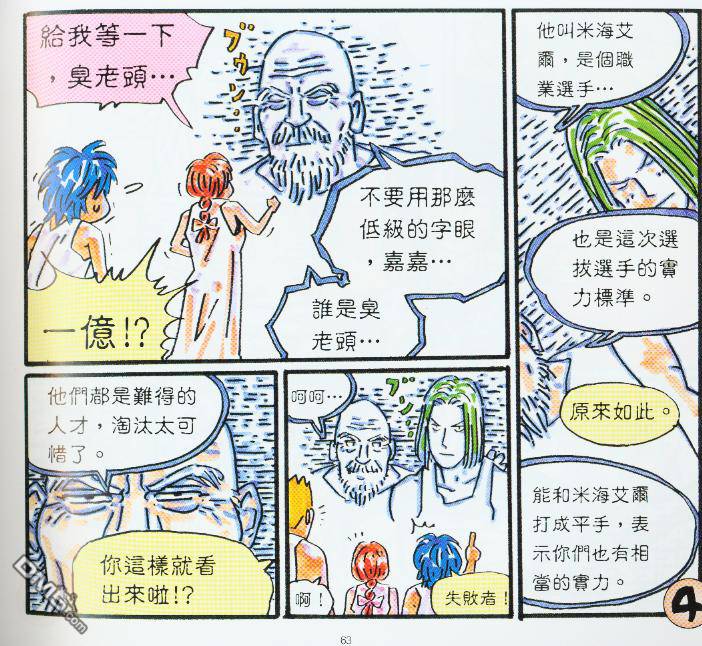 給我等一下
，臭老頭⋯
ブゥン⋯
不要用那麼
低級的字眼
，嘉嘉⋯
誰是臭
老頭⋯
一億!?
他叫米海艾
爾，是個職
業選手⋯
也是這次選
拔選手的實
力標準。
原來如此。
能和米海艾爾
打成平手，表
示你們也有相
當的實力。
他們都是難得的
人才，淘汰太可
惜了。
你這樣就看
出來啦!?
呵呵⋯
啊！
失敗者！
4
63